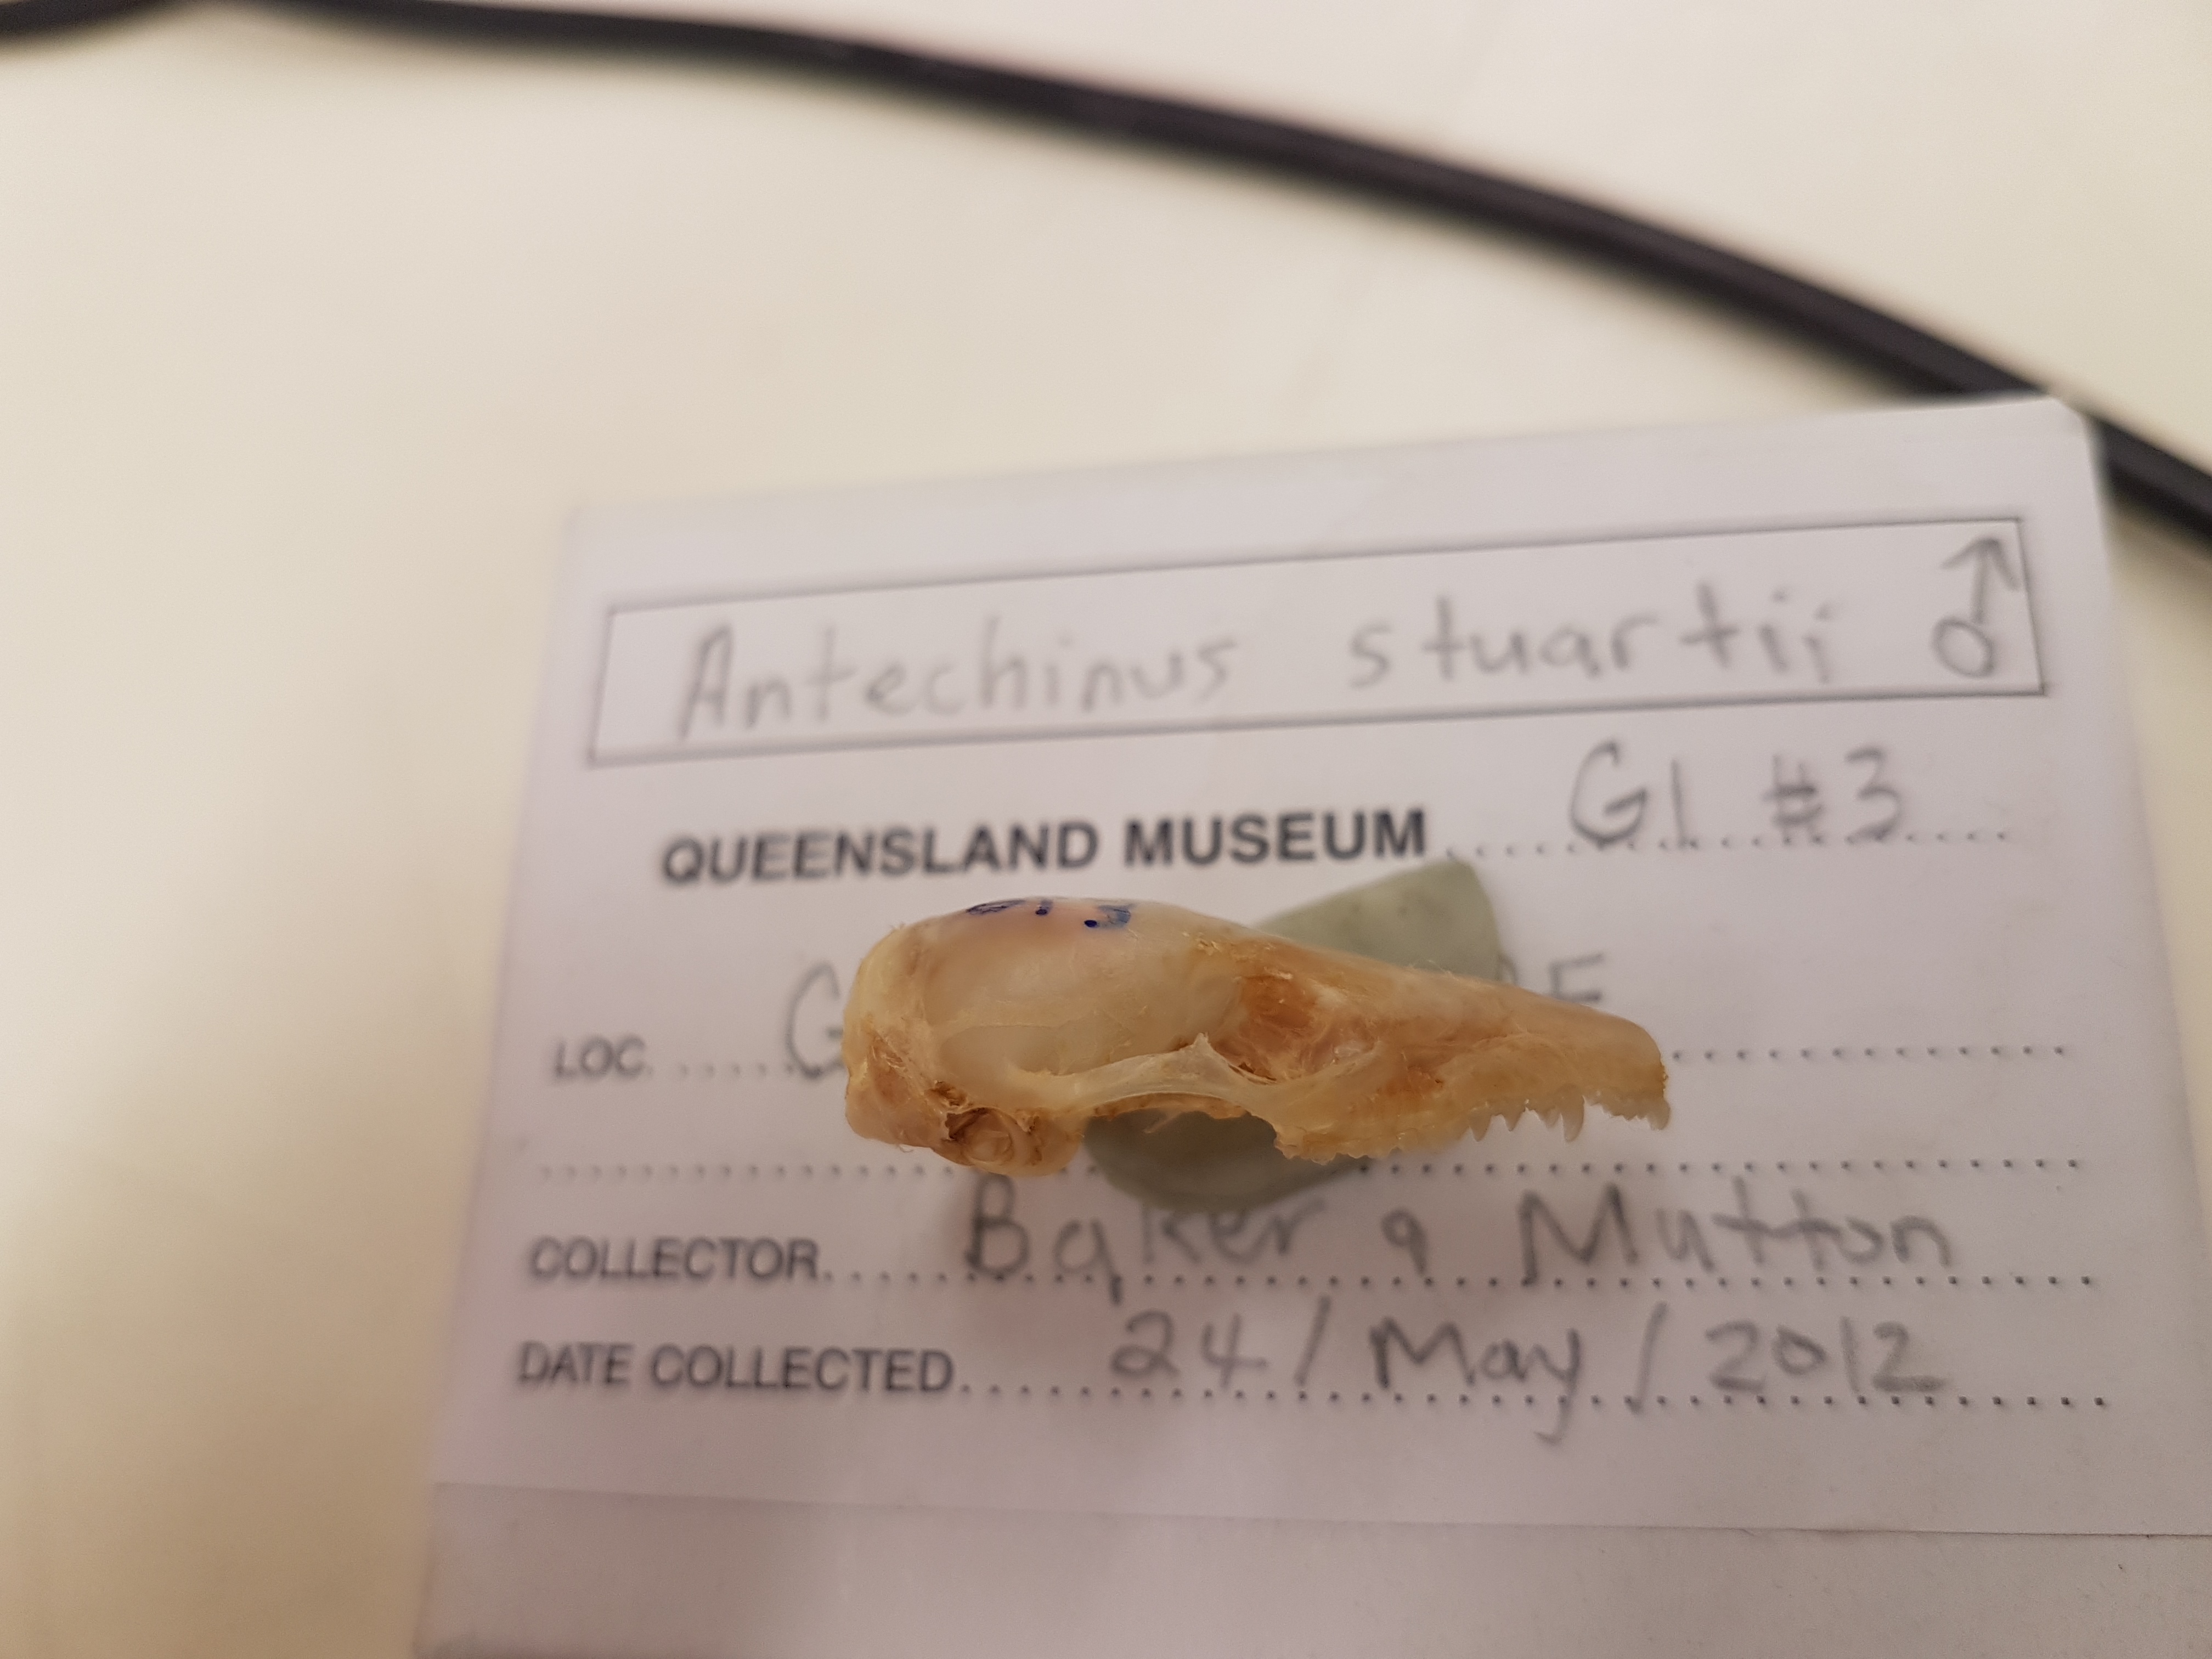 Antechinus stuartii ♂
QUEENSLAND MUSEUM ..... G1 #3 .....
LOC. .....
COLLECTOR. Baker & Mutton
DATE COLLECTED. 24 / May / 2012